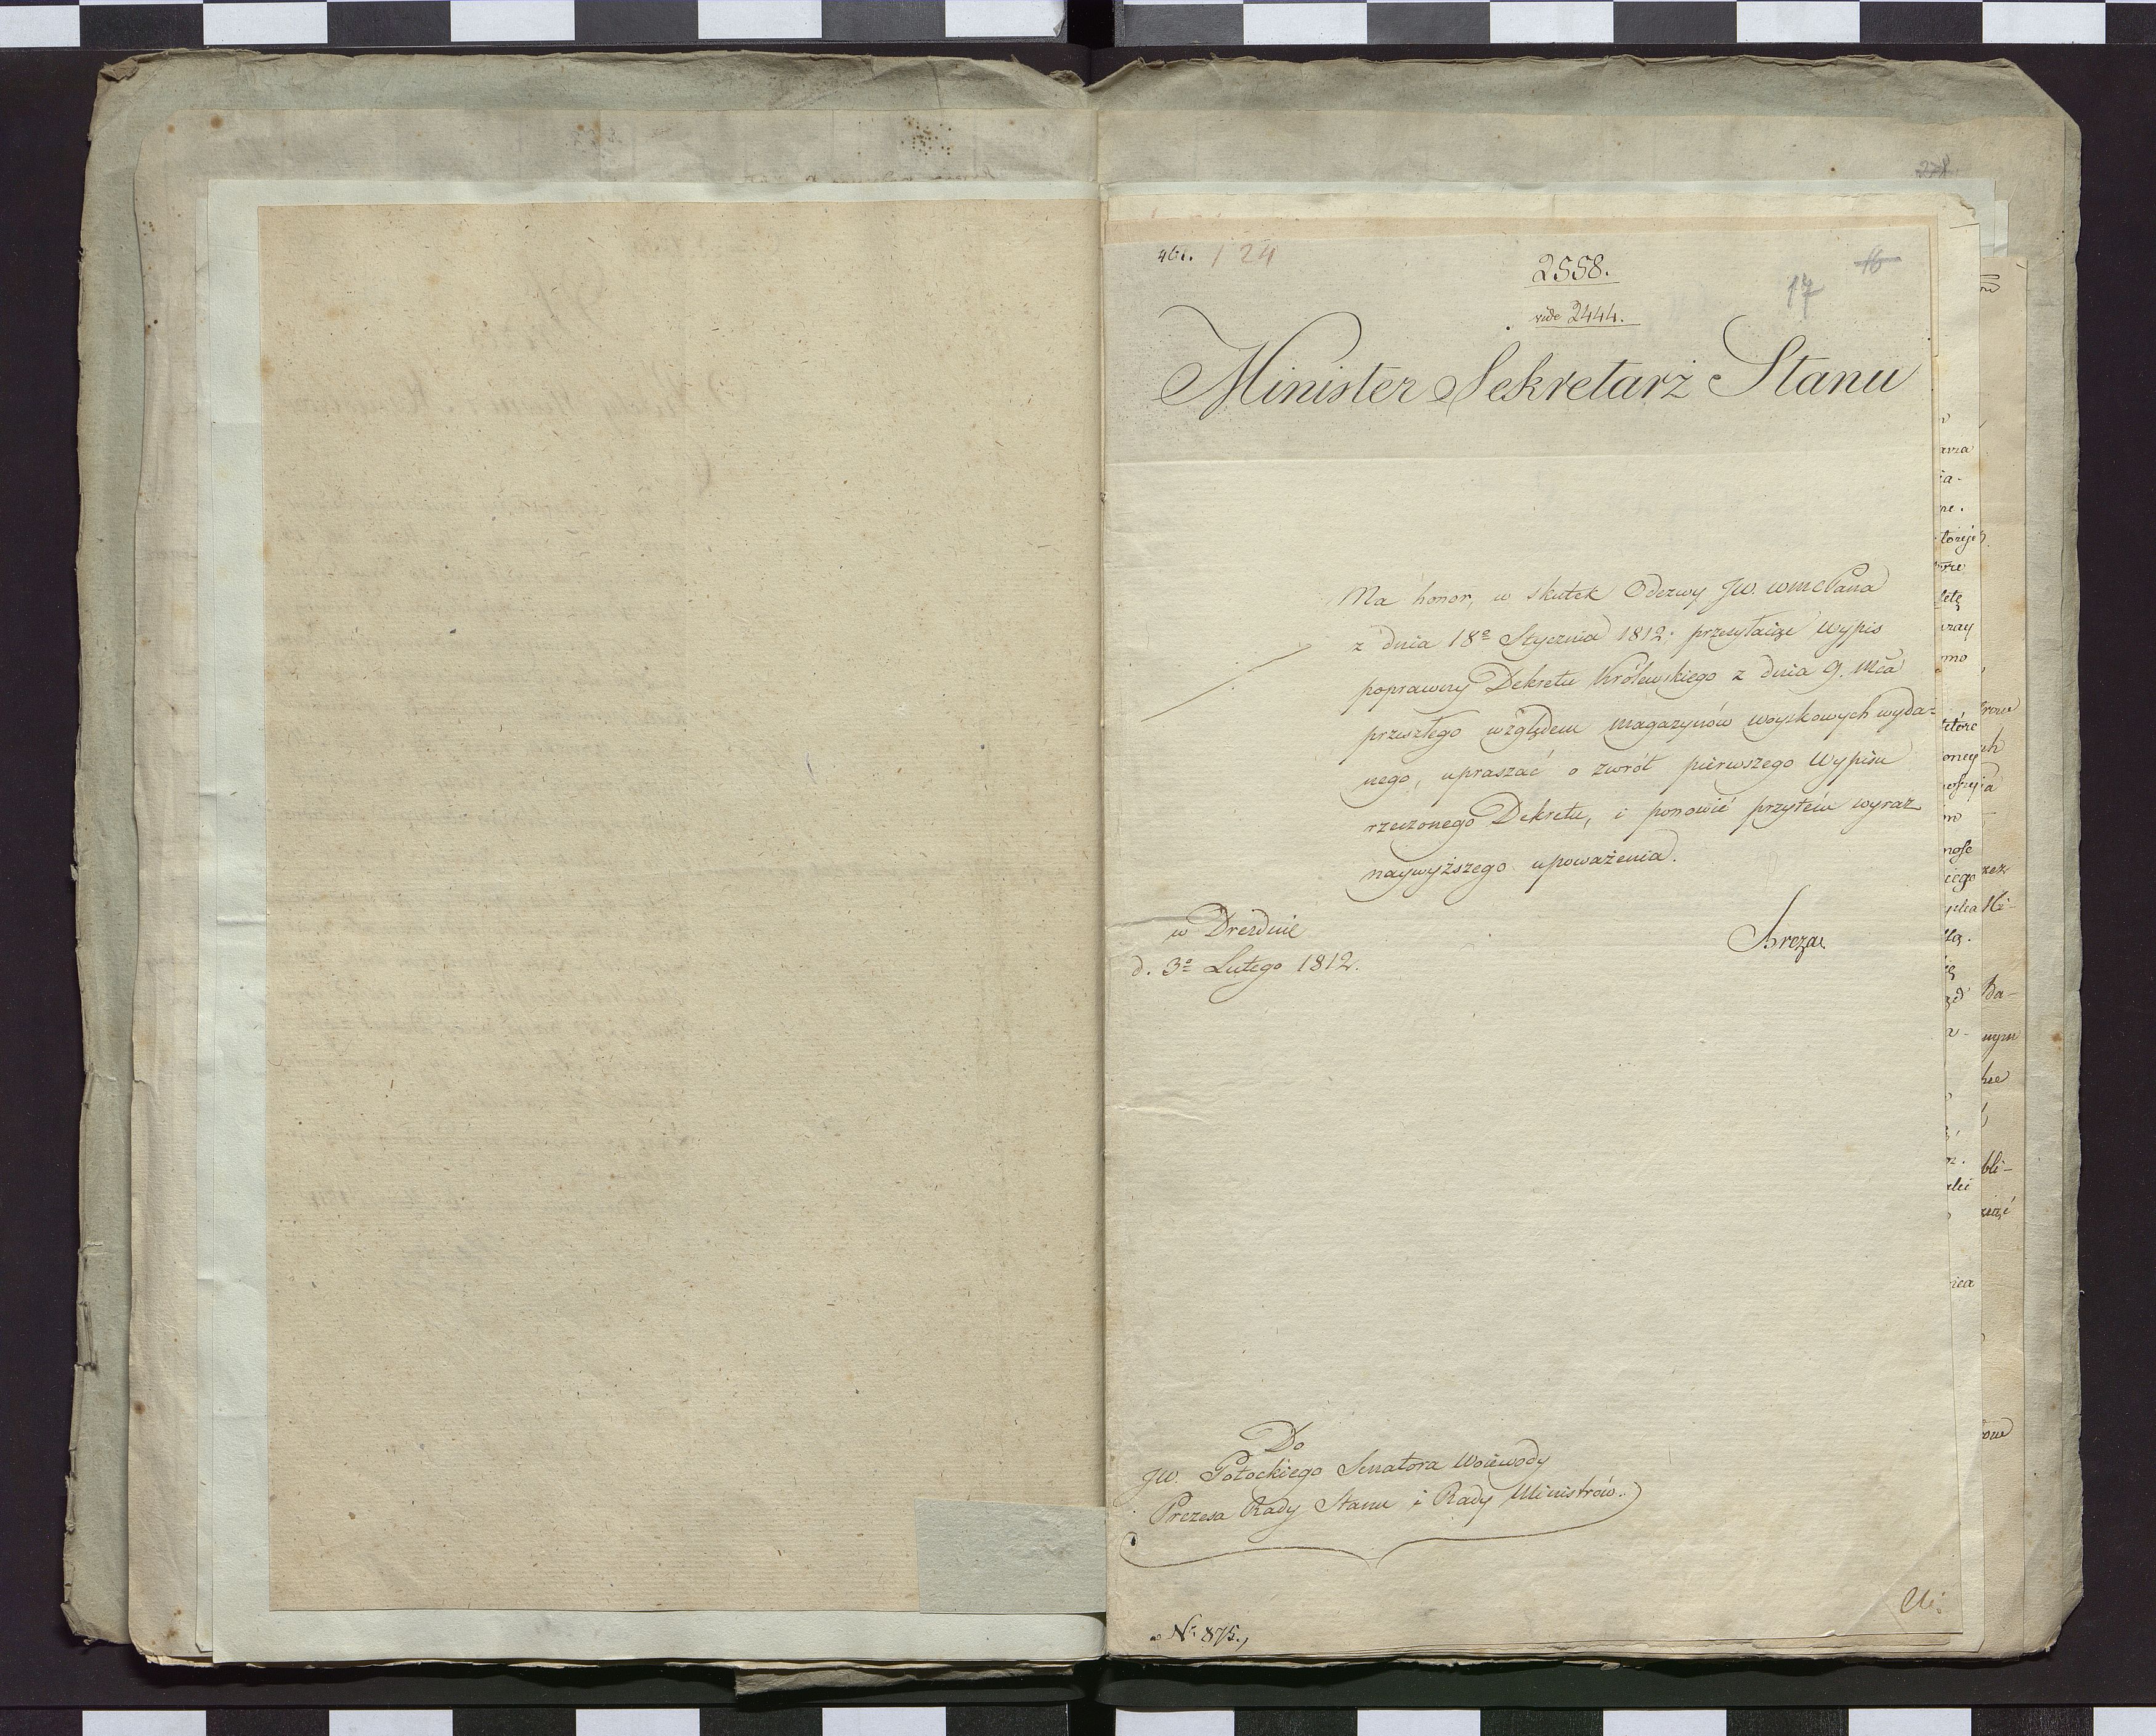 461. 124
2558.
16
17
vide 2444.
Minister Sekretarz Stanu
Ma honor, w skutek Odezwy JW. WMCPana
z dnia 18º Stycznia 1812. przesyłaiąc Wypis
poprawny Dekretu Królewskiego z dnia 9. Mca
przeszłego względem magazynów woyskowych wyda=
nego, upraszać o zwrót pierwszego Wypisu
rzeczonego Dekretu, i ponowić przytém wyraz
naywyższego upoważenia.
w Dreznie
d. 3º Lutego 1812.
Breza
Do
JW. Potockiego Senatora Woiewody
Prezesa Rady Stanu i Rady Ministrów.
Nº 875.,